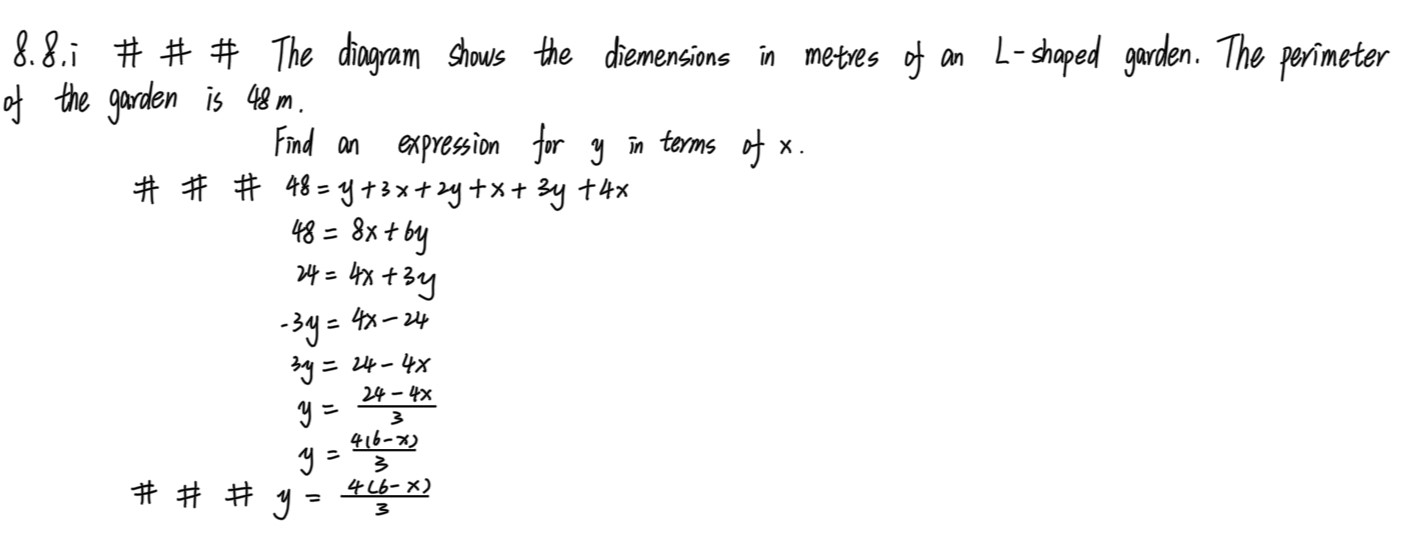 8.8.i # # # The diagram shows the diemensions in metres of an L-shaped garden. The perimeter
of the garden is 48m.
Find an expression for y in terms of x.
# # # 48 = y + 3x + 2y + x + 3y + 4x
48 = 8x + 6y
24 = 4x + 3y
-3y = 4x - 24
3y = 24 - 4x
y = \frac{24 - 4x}{3}
y = \frac{4(6-x)}{3}
# # # y = \frac{4(6-x)}{3}